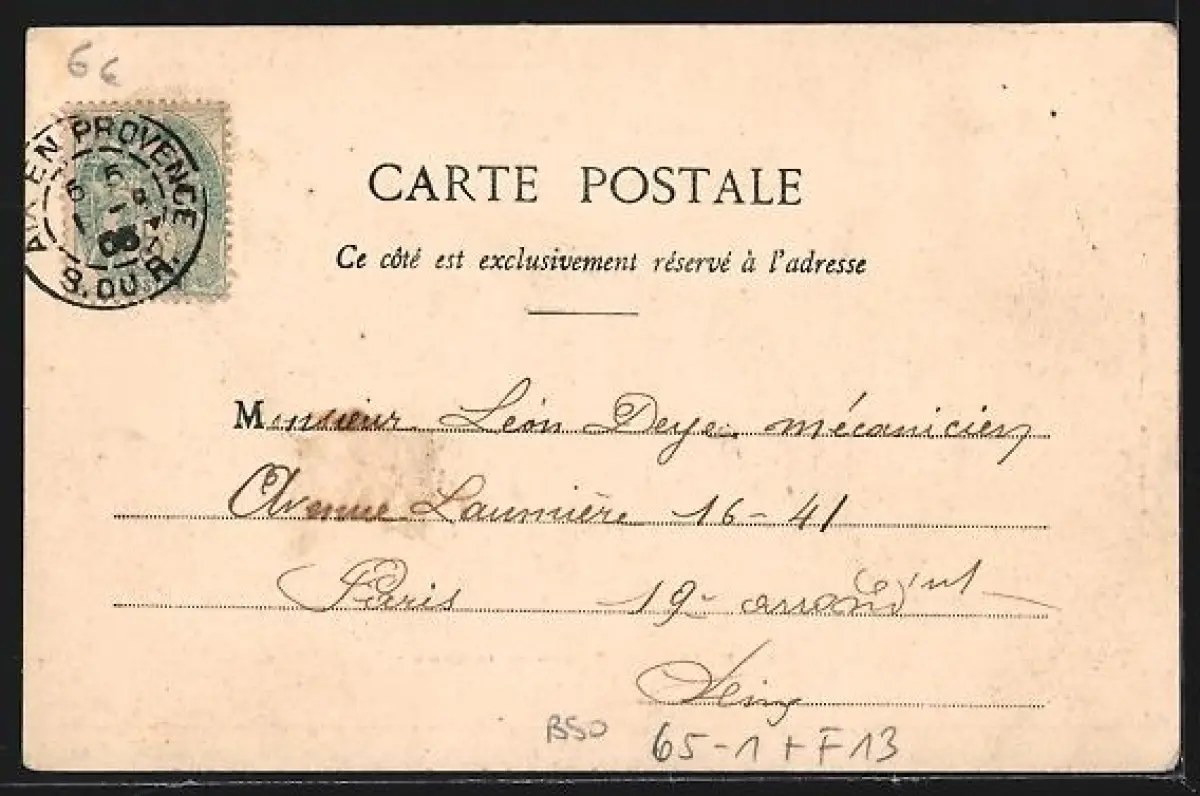 6€
AIX EN PROVENCE
B. DU R.
CARTE POSTALE
Ce côté est exclusivement réservé à l'adresse
Monsieur Léon Deye mécanicien
Avenue Laumière 16-41
Paris 19e arrondint
Seine
B50 65-1+F13